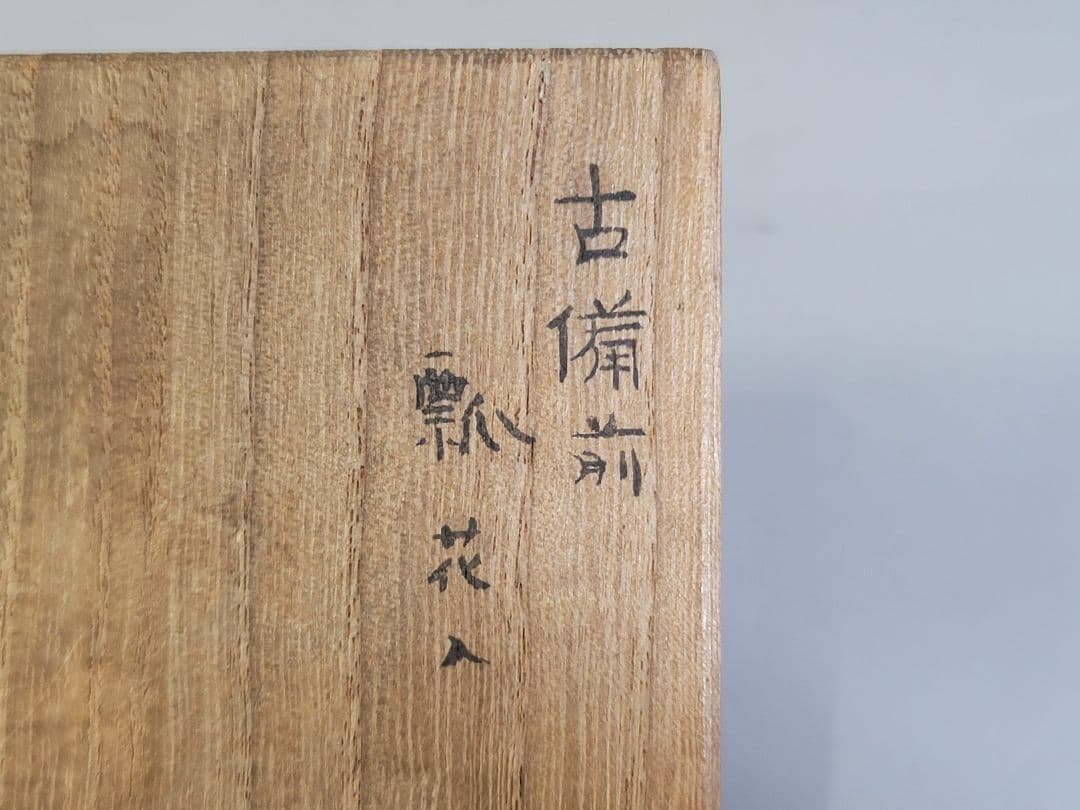 古備前
瓢花入